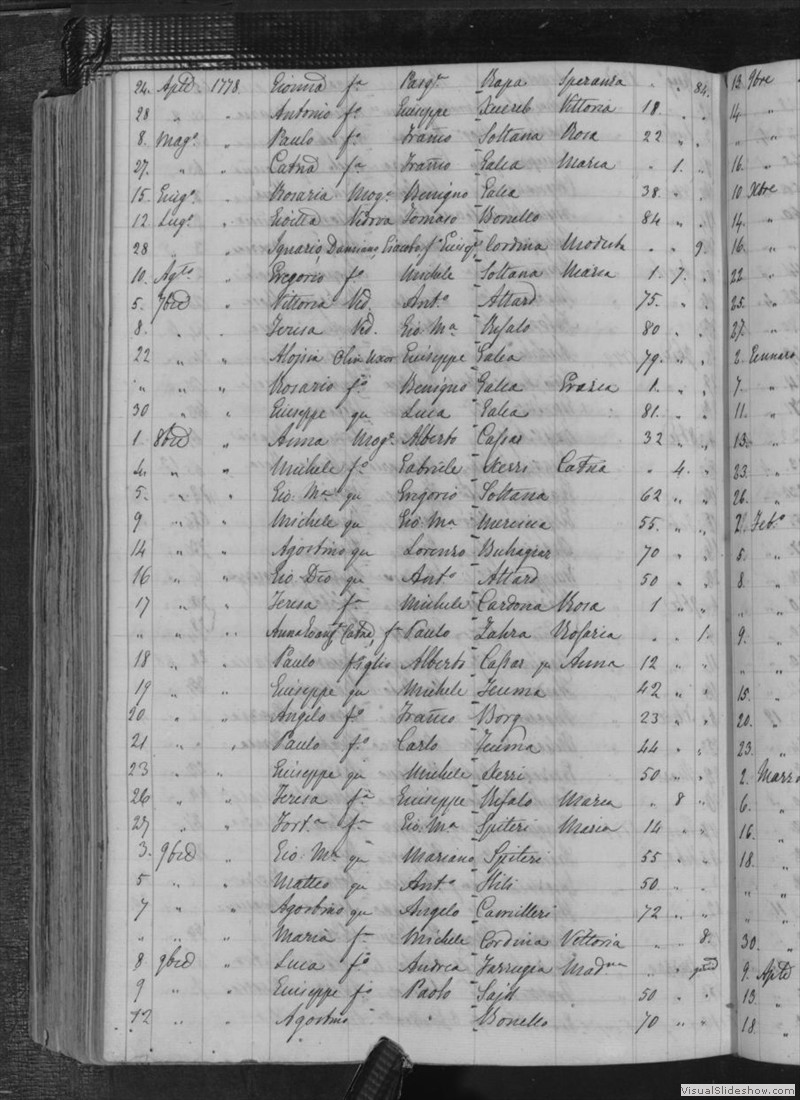 24. Aple 1778 Gionna fa Pasqe Papa Speranza " " 84.
28 " " Antonio fo Giuseppe Xuereb Vittoria 18. " "
8. Mago " Paulo fo Franco Soltana Rosa 22 " "
27. " " Catna fa Franco Galea Maria " 1. "
15. Giugo " Rosaria Moge Benigno Galea 38. " "
12 Lugo " Vedova Tomaso Bonello 84 " "
28 " Ignazio, Damiano, Giacobo Cordina Modesta " " 9.
10. Agto " Gregorio fo Michele Soltana Maria 1. 7. "
5. 7bre " Vittoria Ved. Anto Attard 75. " "
8. " " Teresa Ved. Gio Ma Refalo 80 " "
22 " " Aloisia Olim Uxor Giuseppe Galea 79. " "
" " " Rosario fo Benigno Galea Grazia 1. " "
30 " " Giuseppe qu Luca Galea 81. " "
1. 8bre " Anna Moge Alberto Cassar 32 " "
4. " " Michele fo Gabriele Xerri Catna " 4. "
5. " " Gio Ma qu Gregorio Soltana 62 " "
9 " " Michele qu Gio Ma Mercieca 55. " "
14 " " Agostino qu Lorenzo Buhagiar 70 " "
16 " " Gio Dco qu Anto Attard 50 " "
17 " " Teresa fa Michele Cardona Rosa 1 " "
" " " Catna, fa Paulo Zahra Rosaria " " 1.
18 " " Paulo figlio Alberto Cassar qu Anna 12 " "
19 " " Giuseppe qu Michele Teuma 42 " "
20 " " Angelo fo Franco Borg 23 " "
21 " " Paulo fo Carlo Teuma 44 " "
23 " " Giuseppe qu Michele Xerri 50 " "
26 " " Teresa fa Giuseppe Refalo Maria " 8 "
27 " " Forta fa Gio Ma Spiteri Maria 14 " "
3. 9bre " Gio Ma qu Mariano Spiteri 55 " "
5 " " Matteo qu Anto Hili 50. " "
7 " " Agostino qu Angelo Camilleri 72 " "
" " " Maria fa Michele Cordina Vittoria " " 8.
8 9bre " Luca fo Andrea Farrugia Madna " "
9 " " Giuseppe fo Paolo Sajd 50 " "
12 " " Agostino " Bonello 70 " "
13. 9bre
14 "
" "
16. "
10 Xbre
14. "
16 "
22 "
25. "
27. "
2. Gennaro
7. "
11. "
13. "
23. "
26. "
2. Febo
5. "
8. "
" "
9. "
" "
15. "
20. "
23. "
2. Marzo
6. "
16. "
18. "
" "
" "
30. "
9. Aple
13. "
18. "
VisualSlideshow.com